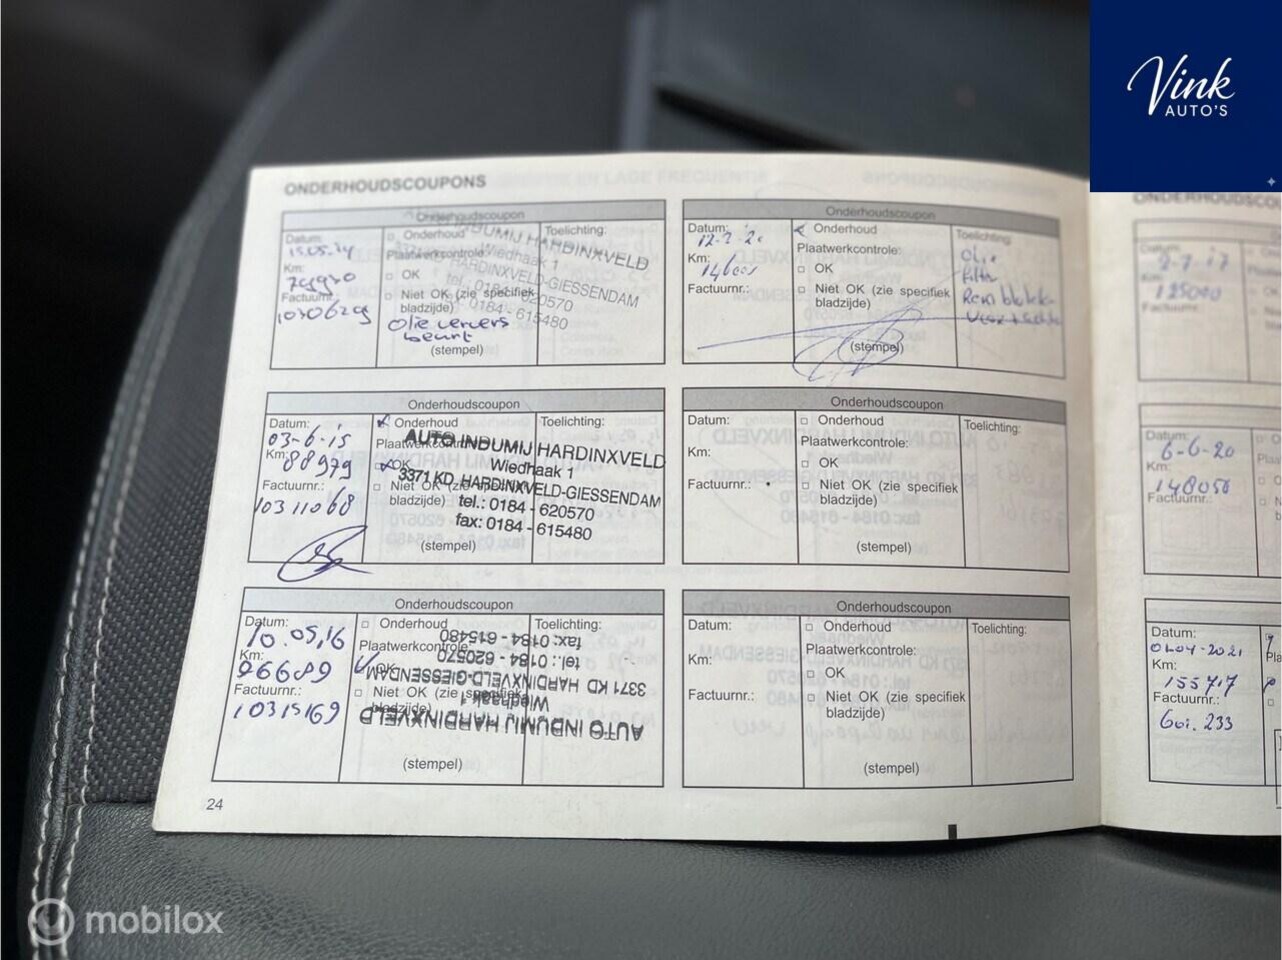 Vink
AUTO'S
ONDERHOUDSCOUPONS
Onderhoudscoupon
Datum:
15.05.14
Km:
Factuurnr.:
10306209
Onderhoud
Plaatwerkcontrole:
OK
Niet OK (zie specifiek
bladzijde)
Olie ververs
beurt
(stempel)
Toelichting:
INDUMIJ HARDINXVELD
Wiedhaak 1
HARDINXVELD-GIESSENDAM
tel.: 0184 - 620570
0184 - 615480
Onderhoudscoupon
Datum:
Km:
Factuurnr.:
Onderhoud
Plaatwerkcontrole:
OK
Niet OK (zie specifiek
bladzijde)
(stempel)
Toelichting:
Olie
Filter
Remblokk
Onderhoudscoupon
Datum:
03-6-15
Km:
88979
Factuurnr.:
10311068
Onderhoud
Plaatwerkcontrole:
OK
Niet OK (zie
bladzijde)
(stempel)
Toelichting:
AUTO INDUMIJ HARDINXVELD
Wiedhaak 1
3371 KD HARDINXVELD-GIESSENDAM
tel.: 0184 - 620570
fax: 0184 - 615480
Onderhoudscoupon
Datum:
Km:
Factuurnr.:
Onderhoud
Plaatwerkcontrole:
OK
Niet OK (zie specifiek
bladzijde)
(stempel)
Toelichting:
Onderhoudscoupon
Datum:
10.05.16
Km:
96689
Factuurnr.:
10315169
Onderhoud
Plaatwerkcontrole:
OK
Niet OK (zie specifiek
bladzijde)
(stempel)
Toelichting:
AUTO INDUMIJ HARDINXVELD
Wiedhaak 1
3371 KD HARDINXVELD-GIESSENDAM
tel.: 0184 - 620570
fax: 0184 - 615480
Onderhoudscoupon
Datum:
Km:
Factuurnr.:
Onderhoud
Plaatwerkcontrole:
OK
Niet OK (zie specifiek
bladzijde)
(stempel)
Toelichting:
24
ONDERHOUDSCOUPO
Datum:
2-7-17
Km:
125000
Factuurnr.:
Datum:
6-6-20
Km:
148050
Factuurnr.:
Datum:
01-04-2021
Km:
155717
Factuurnr.:
233
mobilox